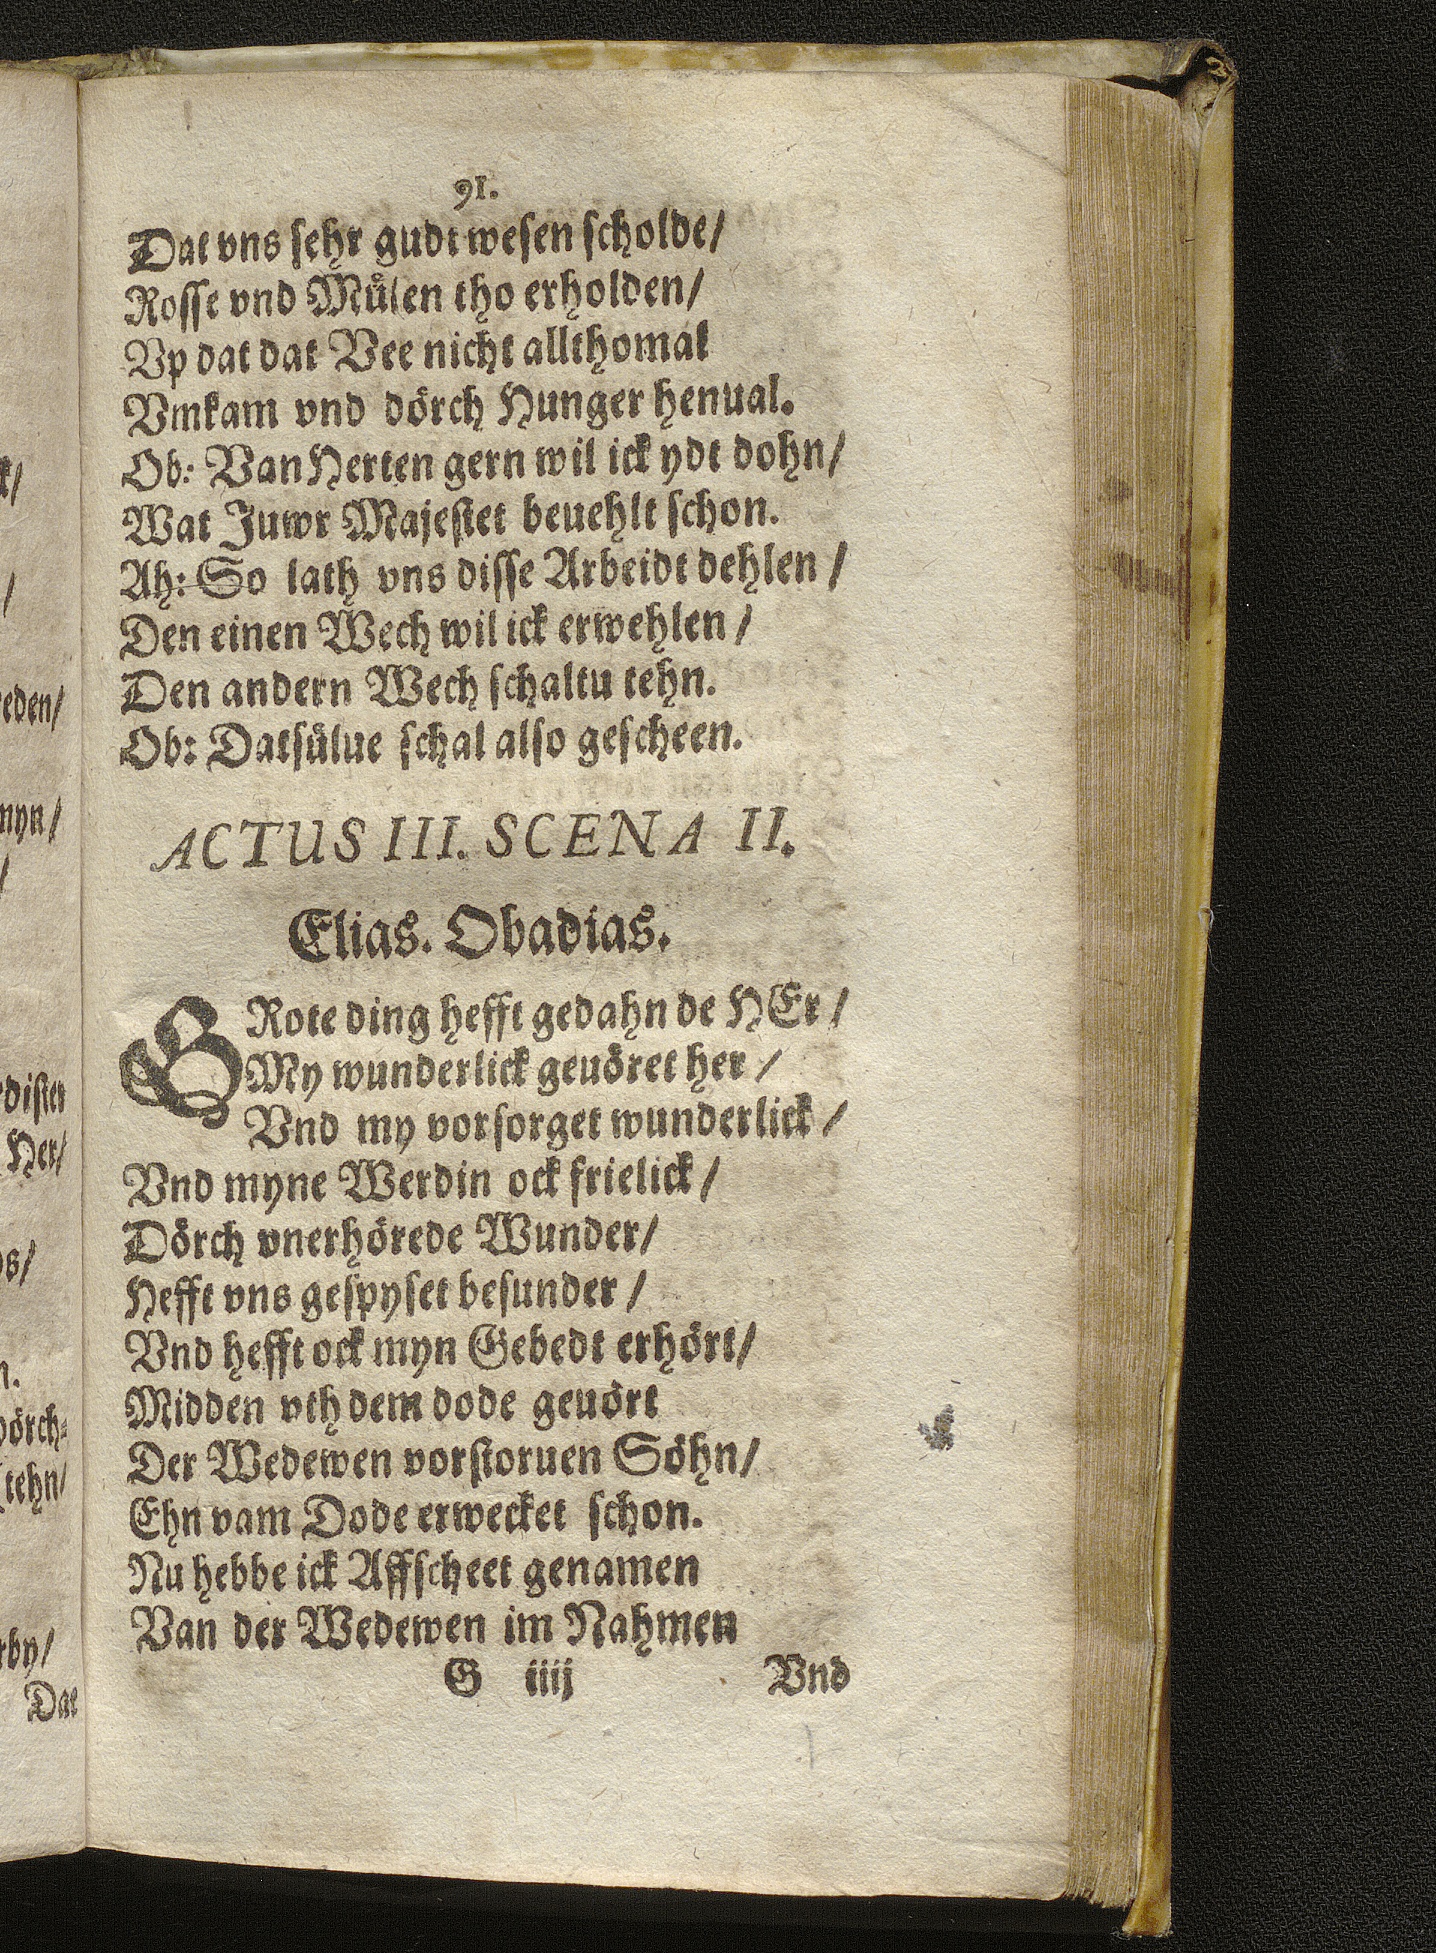 91.
Dat vns sehr gudt wesen scholde/
Rosse vnd Mülen tho erholden/
Vp dat dat Vee nicht allthomal
Vmkam vnd dörch Hunger henual.
Ob: Van Herten gern wil ick ydt dohn/
Wat Juwr Majestet beuehlt schon.
Ah: So lath vns disse Arbeidt dehlen/
Den einen Wech wil ick erwehlen/
Den andern Wech schaltu tehn.
Ob: Datsülue schal also gescheen.
ACTUS III. SCENA II.
Elias. Obadias.
GRote ding hefft gedahn de HEr/
My wunderlick geuöret her/
Vnd my vorsorget wunderlick/
Vnd myne Werdin ock frielick/
Dörch vnerhörede Wunder/
Hefft vns gespyset besunder/
Vnd hefft ock myn Gebedt erhört/
Midden vth dem dode geuört
Der Wedewen vorstoruen Söhn/
Ehn vam Dode erwecket schon.
Nu hebbe ick Affscheet genamen
Van der Wedewen im Nahmen
G iiij Vnd